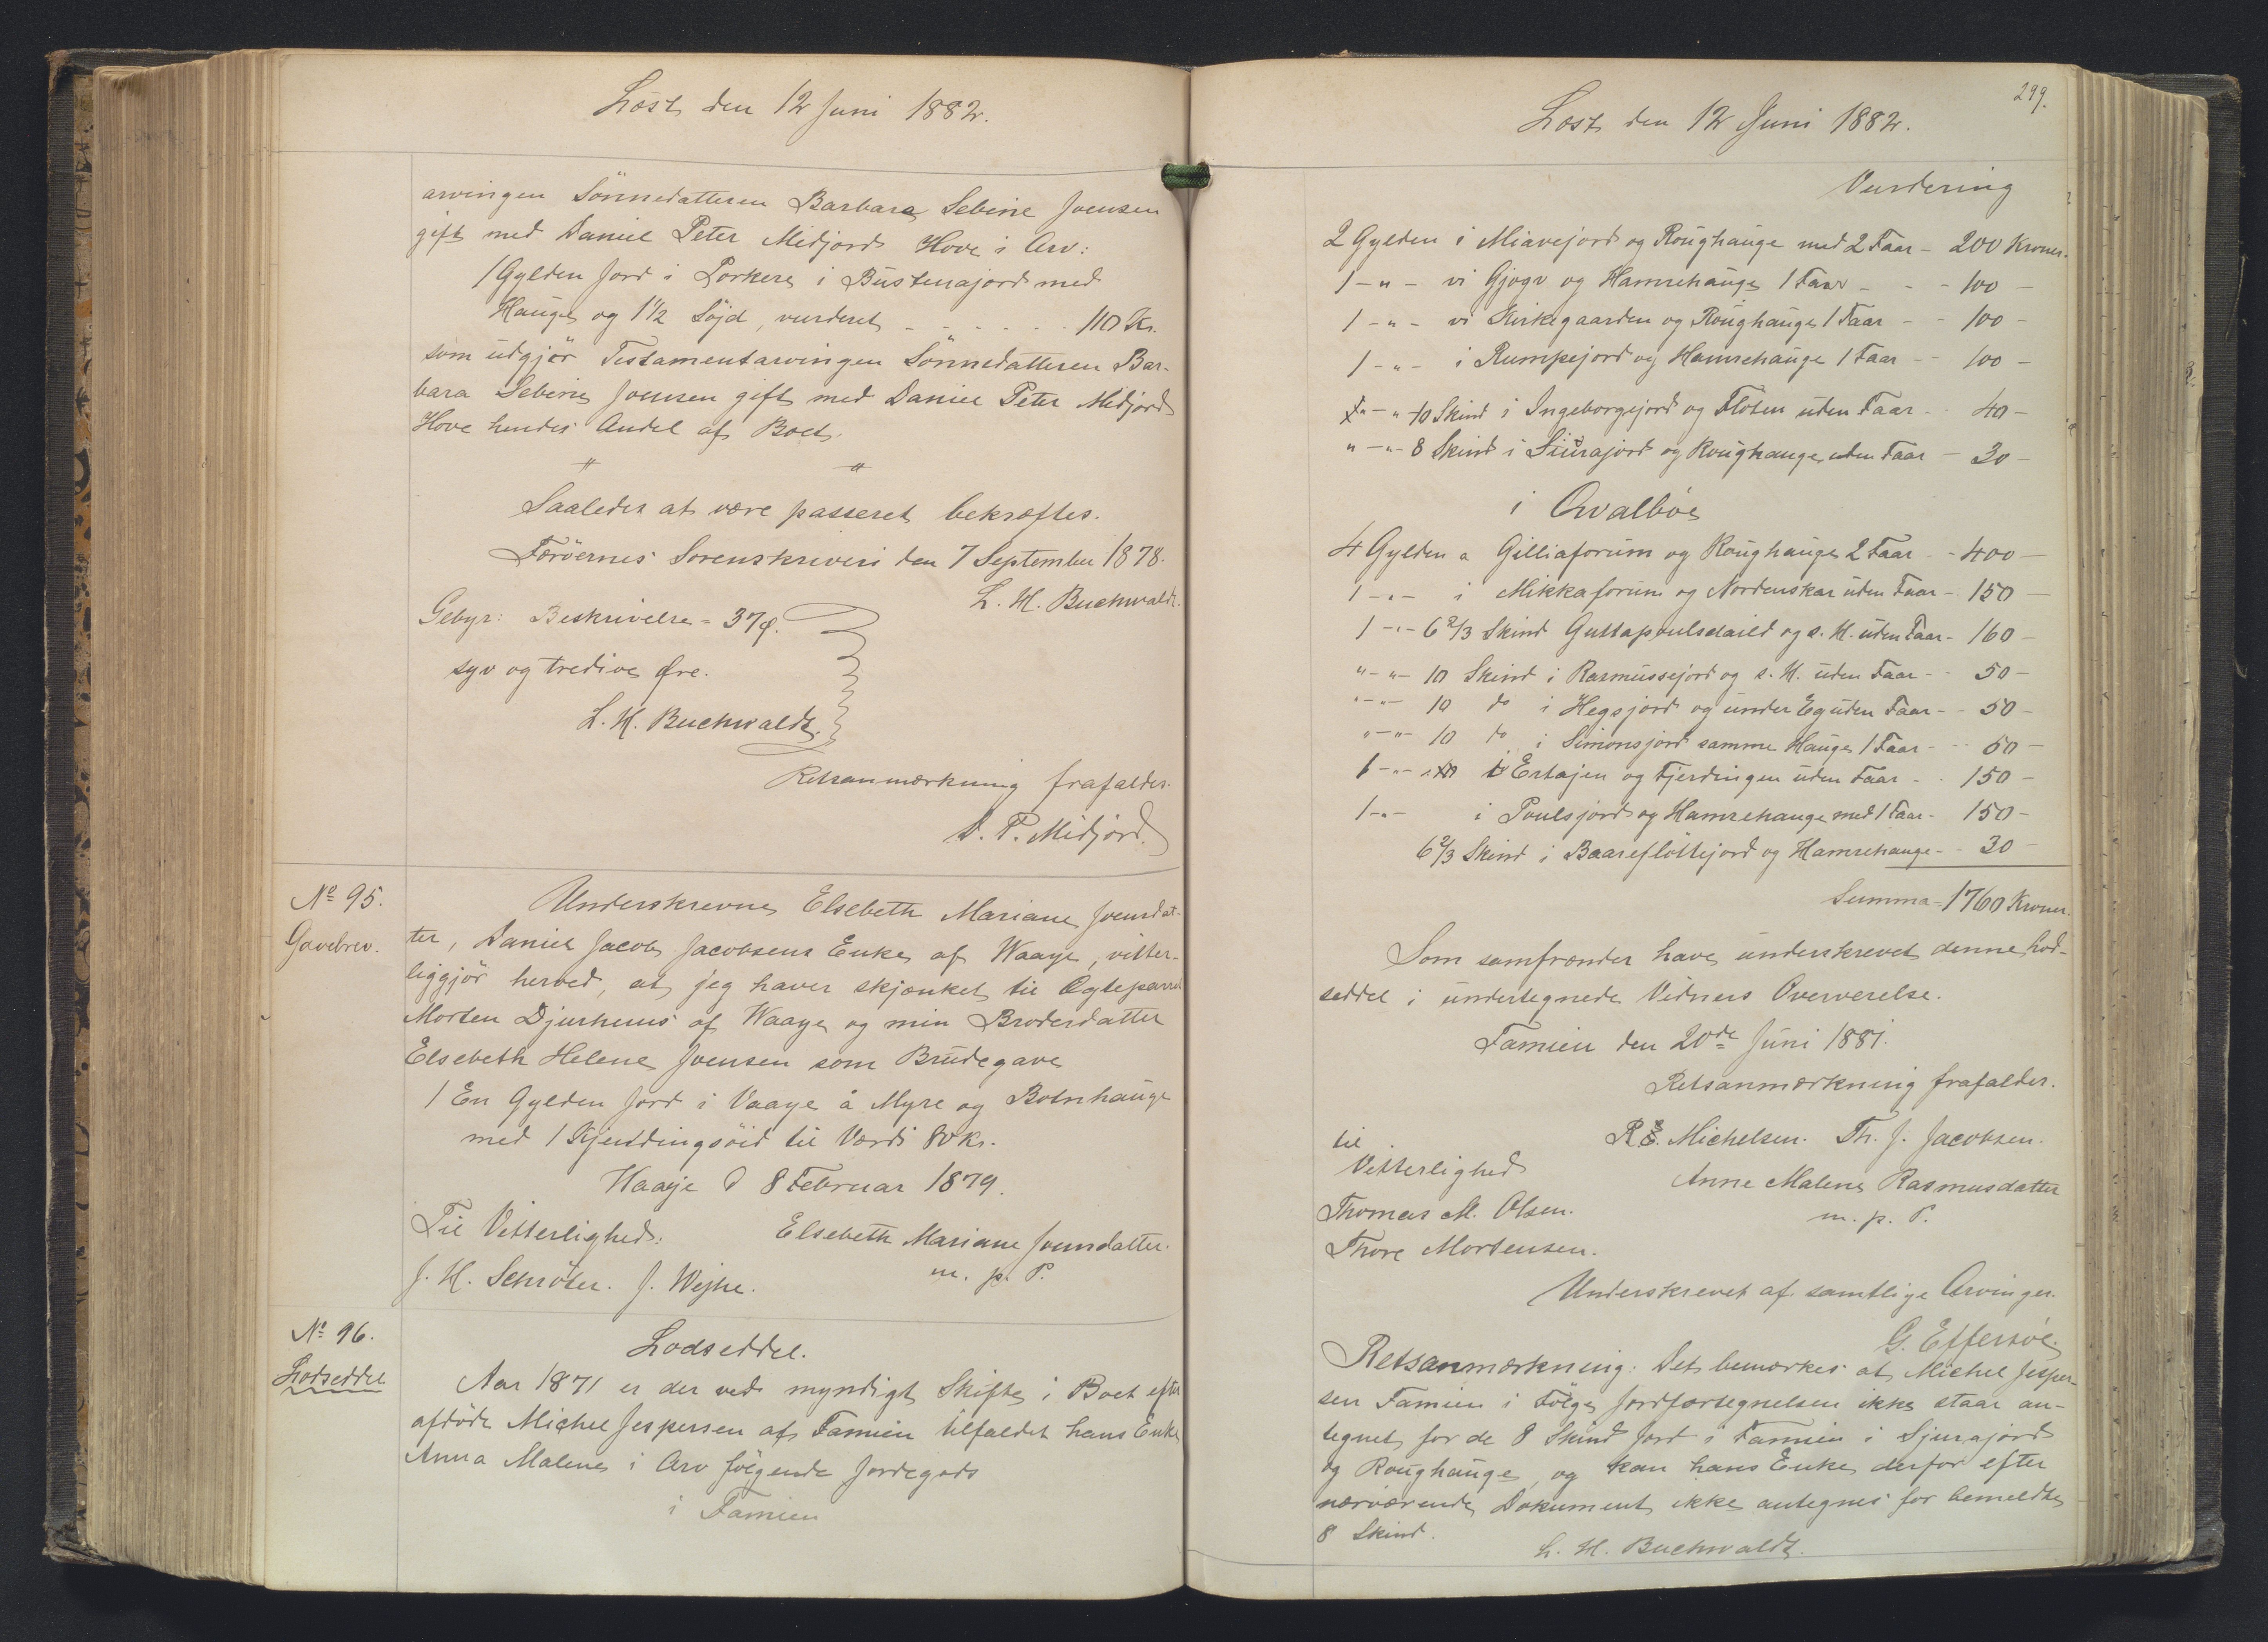 Læst den 12 Juni 1882.
arvingen Sönnedatteren Barbara Sebine Joensen
gift med Daniel Peter Midjord Hove i Arv:
1 Gylden Jord i Porkere i Bústenajord med
Hauge og 1 1/2 Söjd, vurderet - - - - - - 110 Kr.
som udgjör Testamentarvingen Sönnedatteren Bar-
bara Sebine Joensen gift med Daniel Peter Midjord
Hove hendes Andel af Boet.
" "
Saaledes at være passeret bekræftes.
Færöernes Sorenskriveri den 7 September 1878.
L. H. Buchwaldt.
Gebyr: Beskrivelse = 37 Ø.
syv og tredive Øre.
L. H. Buchwaldt.
Retsanmærkning frafaldes.
D. P. Midjord.
No 95.
Gavebrev.
Underskrevne Elsebeth Mariane Joensdat-
ter, Daniel Jacob Jacobsens Enke af Waage, vitter-
liggjör herved, at jeg haver skjænket til Ægteparret
Morten Djurhuus af Waage og min Broderdatter
Elsebeth Helene Joensen som Brudegave
1 En Gylden Jord i Vaage å Myre og Botnhauge
med 1 Kjendingsöid til Værdi 80 Kr.
Waage d 8 Februar 1879.
Til Vitterlighed: Elsebeth Mariane Joensdatter.
J. H. Schröter. J. Wejhe. m. p. P.
No 96.
Lodseddel
Lodseddel.
Aar 1871 er der ved myndigt Skifte i Boet efter
afdöde Michel Jespersen af Famien tilfaldet hans Enke
Anna Malene i Arv fölgende Jordegods
i Famien
299.
Læst den 12 Juni 1882.
Vurdering
2 Gylden i Miavejord og Roughauge med 2 Faar - 200 Kroner.
1 - " - vi Gjogv og Hamrehauge 1 Faar - - - 100 -
1 - " - vi Kirkegaarden og Roughauge 1 Faar - - 100 -
1 - " - i Rumpejord og Hamrehauge 1 Faar - - 100 -
" - " 10 Skind i Ingeborgejord og Floten uden Faar - - 40 -
" - " - 8 Skind i Siurajord og Roughauge uden Faar - 30 -
i Qvalböe
4 Gylden a Gilliaforum og Roughauge 2 Faar - - 400 -
1 - " - i Mikkaforum og Nordenskar uden Faar - 150 -
1 - " - 6 2/3 Skind Guttapoulsdaild og s. H. uden Faar - 160 -
" - " - 10 Skind i Rasmussejord og s. H. uden Faar - - 50 -
" - " - 10 do i Hegsjord og under Eg uden Faar - - 50 -
" - " - 10 do i Simonsjord samme Hauge 1 Faar - - - 50 -
1 - " - i Ertajen og Fjerdingen uden Faar - - 150 -
1 - " - i Poulsjord og Hamrehauge med 1 Faar - 150 -
6 2/3 Skind i Baareflöttejord og Hamrehauge - - 30 -
Summa = 1760 Kroner.
Som samfrænder have underskrevet denne Lod-
seddel i undertegnede Vidners Overværelse.
Famien den 20de Juni 1881.
Retsanmærkning frafaldes.
til R. S. Michelsen. Th. J. Jacobsen.
Vitterlighed Anne Malene Rasmusdatter
Thomas M. Olsen. m. p. P.
Thore Mortensen.
Underskrevet af samtlige Arvinger.
G. Effersöe.
Retsanmærkning: Det bemærkes at Michel Jesper-
sen Famien i Fölge Jordfortegnelsen ikke staar an-
tegnet for de 8 Skind Jord i Famien i Sjurajord
og Roughauge, og kan hans Enke derfor efter
nærværende Dokument ikke antegnes for bemeldte
8 Skind.
L. H. Buchwaldt.